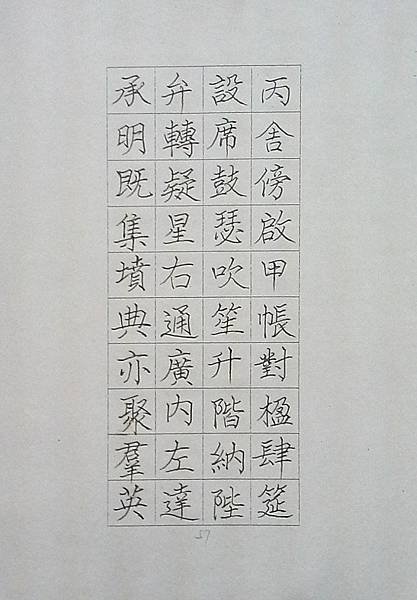 丙舍傍啟甲帳對楹肆筵
設席鼓瑟吹笙升階納陛
弁轉疑星右通廣內左達
承明既集墳典亦聚羣英
57